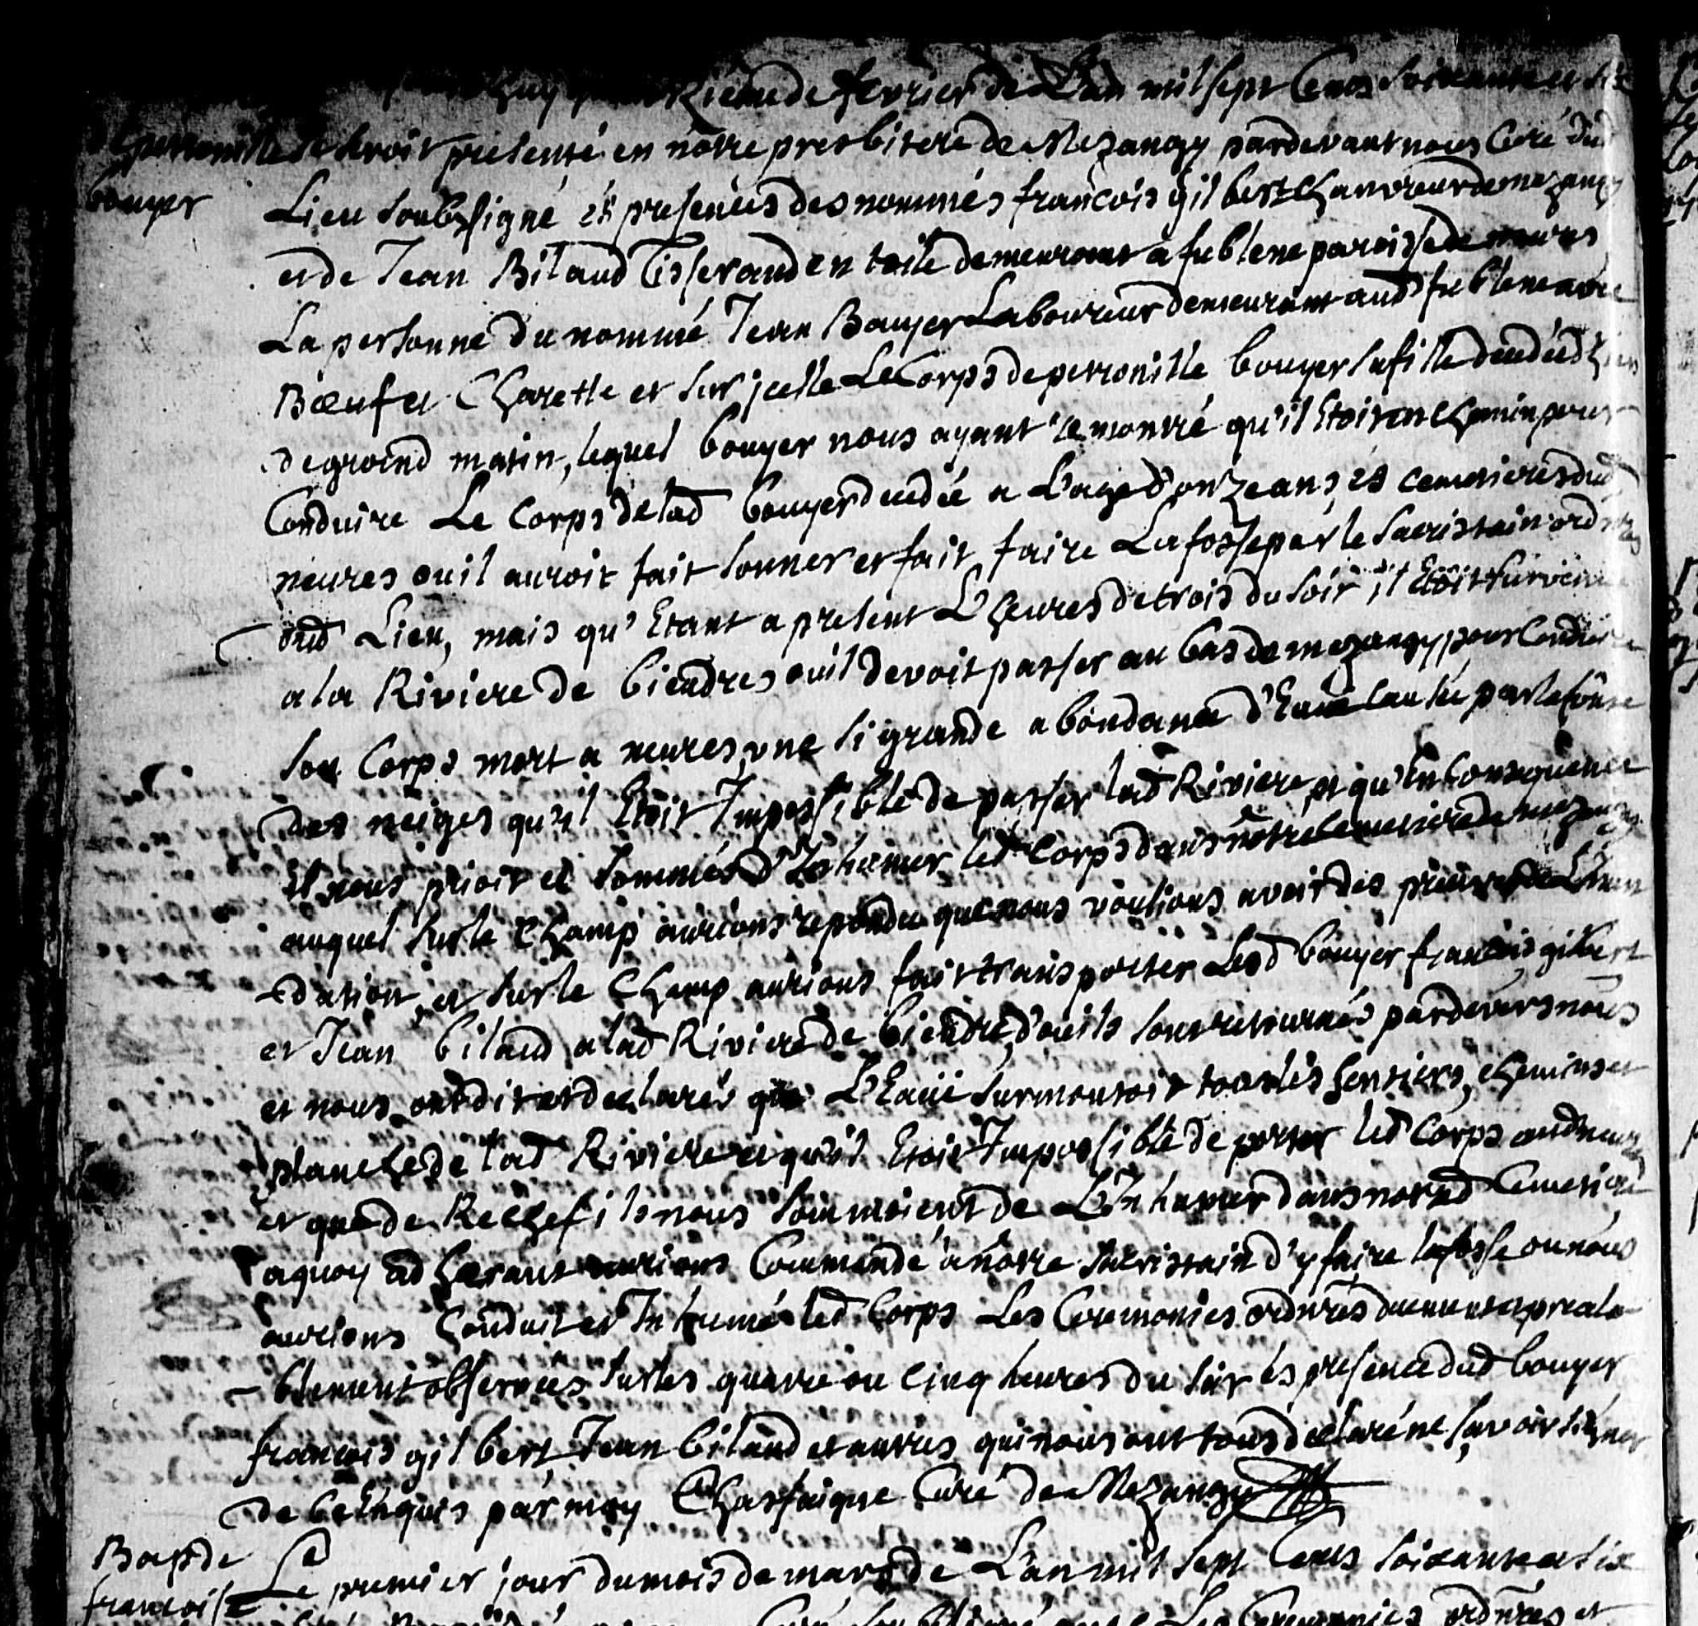 de fevrier de L'an mil sept Cens soixante et six
perronille se seroit presenté en nôtre presbitere de Mezangy pardevant nous Curé dud
bouyer
Lieu soubsigné és presences des nommés francois gilbert Chanvreur de mezangy
et de Jean Bilaud Tisserand en toile demeurant a fublene paroisse de neures
La personne du nommé Jean Bouyer Laboureur demeurant aud fublene avec
Bœuf et Charette et sur jcelle Le Corps de perronille bouyer sa fille decedée hier
de grand matin, lequel bouyer nous ayant remontré qu'il Etoit en chemin pour
Conduire Le Corps de lad bouyer decedée a L'age d'onze ans és cemetieres dud
neures ou il auroit fait sonner et fait faire La fosse par le sacristain ordre
dud Lieu, mais qu'Etant a present L'heures de trois du soir il Etoit survenu
a la Riviere de biendres ou il devoit passer au bas de mezangy pour Conduire
son Corps mort a neures une si grande abondance d'Eaue causée par la fonte
des neiges qu'il Etoit Impossible de passer lad Riviere, et qu'En Consequence
il nous prioit et sommés d'Inhumer led Corps dans nôtre Cemetiere de mezangy
auquel sur le Champ aurions repondu que nous voulions avoir des preuves de L'inon
dation, et sur le Champ aurions fait transporter Led bouyer francois gilbert
et Jean bilaud a lad Riviere de biendre, d'ou ils sont retournés pardevers nous
et nous ont dit et declarés que L'Eaue surmontoit tous les sentiers, chemins et
planche de lad Riviere et qu'il Etoit Impossible de porter led Corps aud neures
et que de Rechef ils nous sommoient de L'Inhumer dans notred Cemetiere
a quoy adherant aurions Commandé a notre sacristain d'y faire la fosse ou nous
aurions Conduit et Inhumé led Corps Les Ceremonies ordnres duement et preala
blement observées sur les quatre ou Cinq heures du soir és presence dud bouyer
francois gilbert Jean bilaud et autres qui nous ont tous declaré ne savoir signer
de ce Enquis par moy Chassaigne Curé de Mezangy
Bapde
francoise
Le premier jour du mois de mars de L'an mil sept Cens soixante et six
Les Ceremonies ordnres et